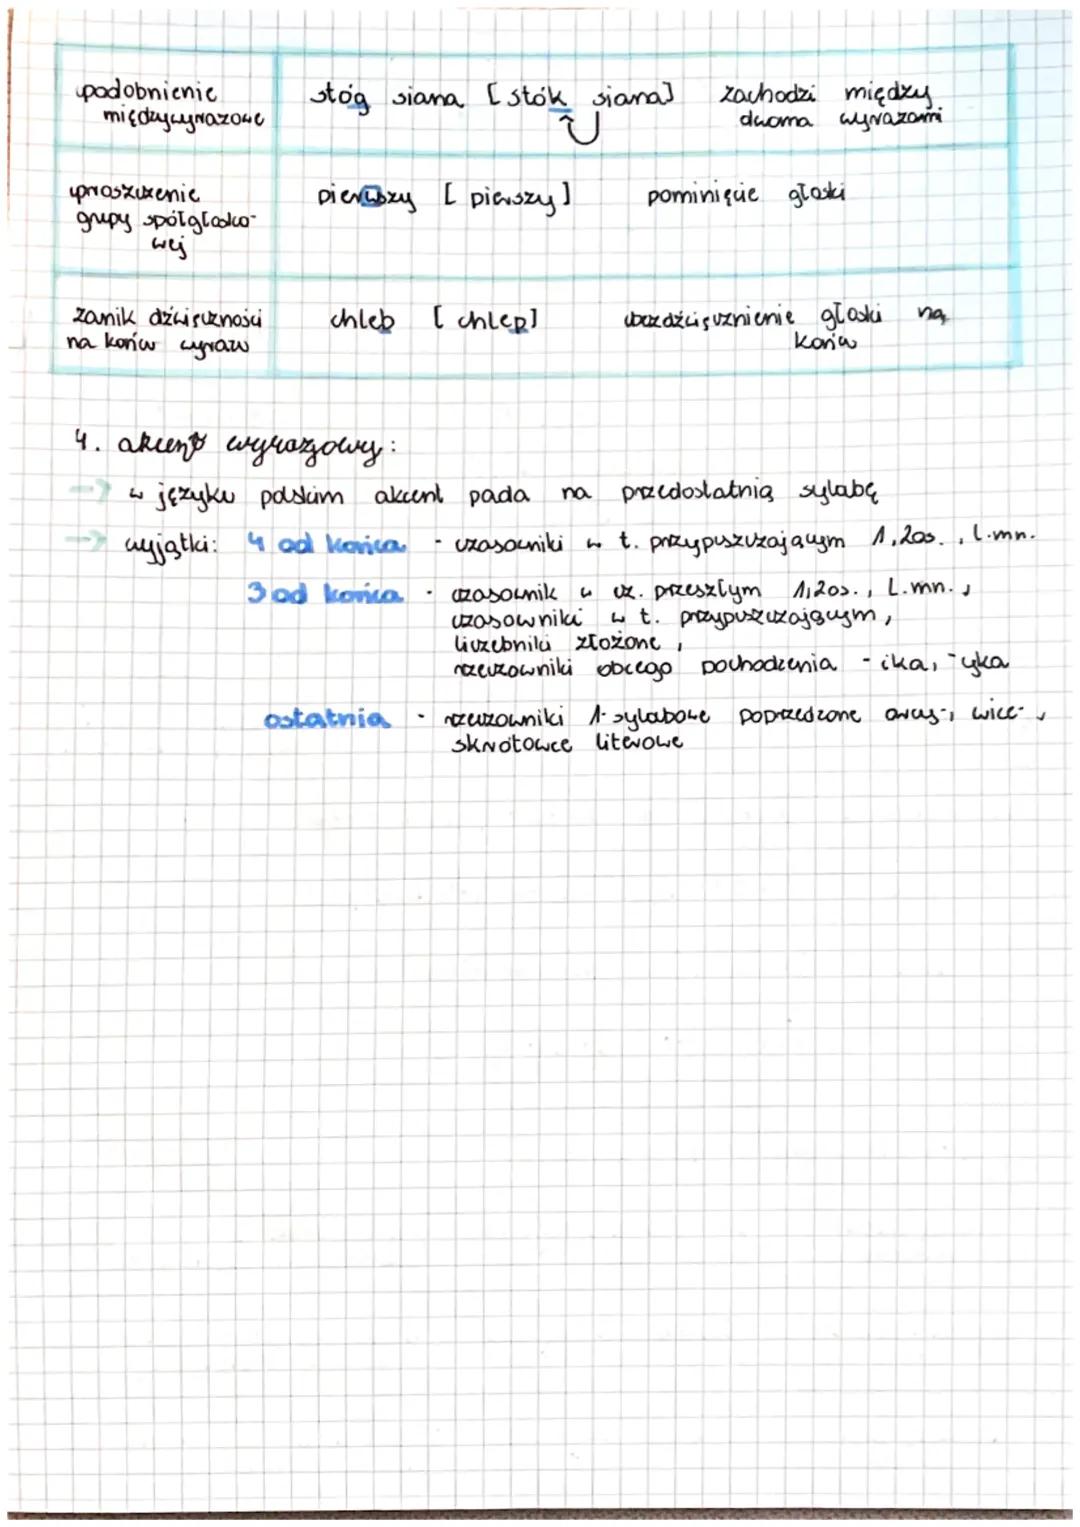 upodobnienie międzywyrazowe
stóg siana [stók siana] zachodzi między dwoma wyrazami
uproszczenie grupy spółgłosko-wej
pierwszy [pierszy] pominięcie głoski
zanik dźwięczności na końcu wyrazu
chleb [chlep] ubezdźwięcznienie głoski na końcu
4. akcent wyrazowy:
→ w języku polskim akcent pada na przedostatnią sylabę
→ wyjątki: 4 od końca - czasowniki w t. przypuszczającym 1,2os., l.mn.
3 od końca - czasownik w cz. przeszłym 1,2os., l.mn.,
czasowniki w t. przypuszczającym,
liczebniki złożone,
rzeczowniki obcego pochodzenia -ika, -yka
ostatnia - rzeczowniki 1-sylabowe poprzedzone arcy-, wice-,
skrótowce literowe